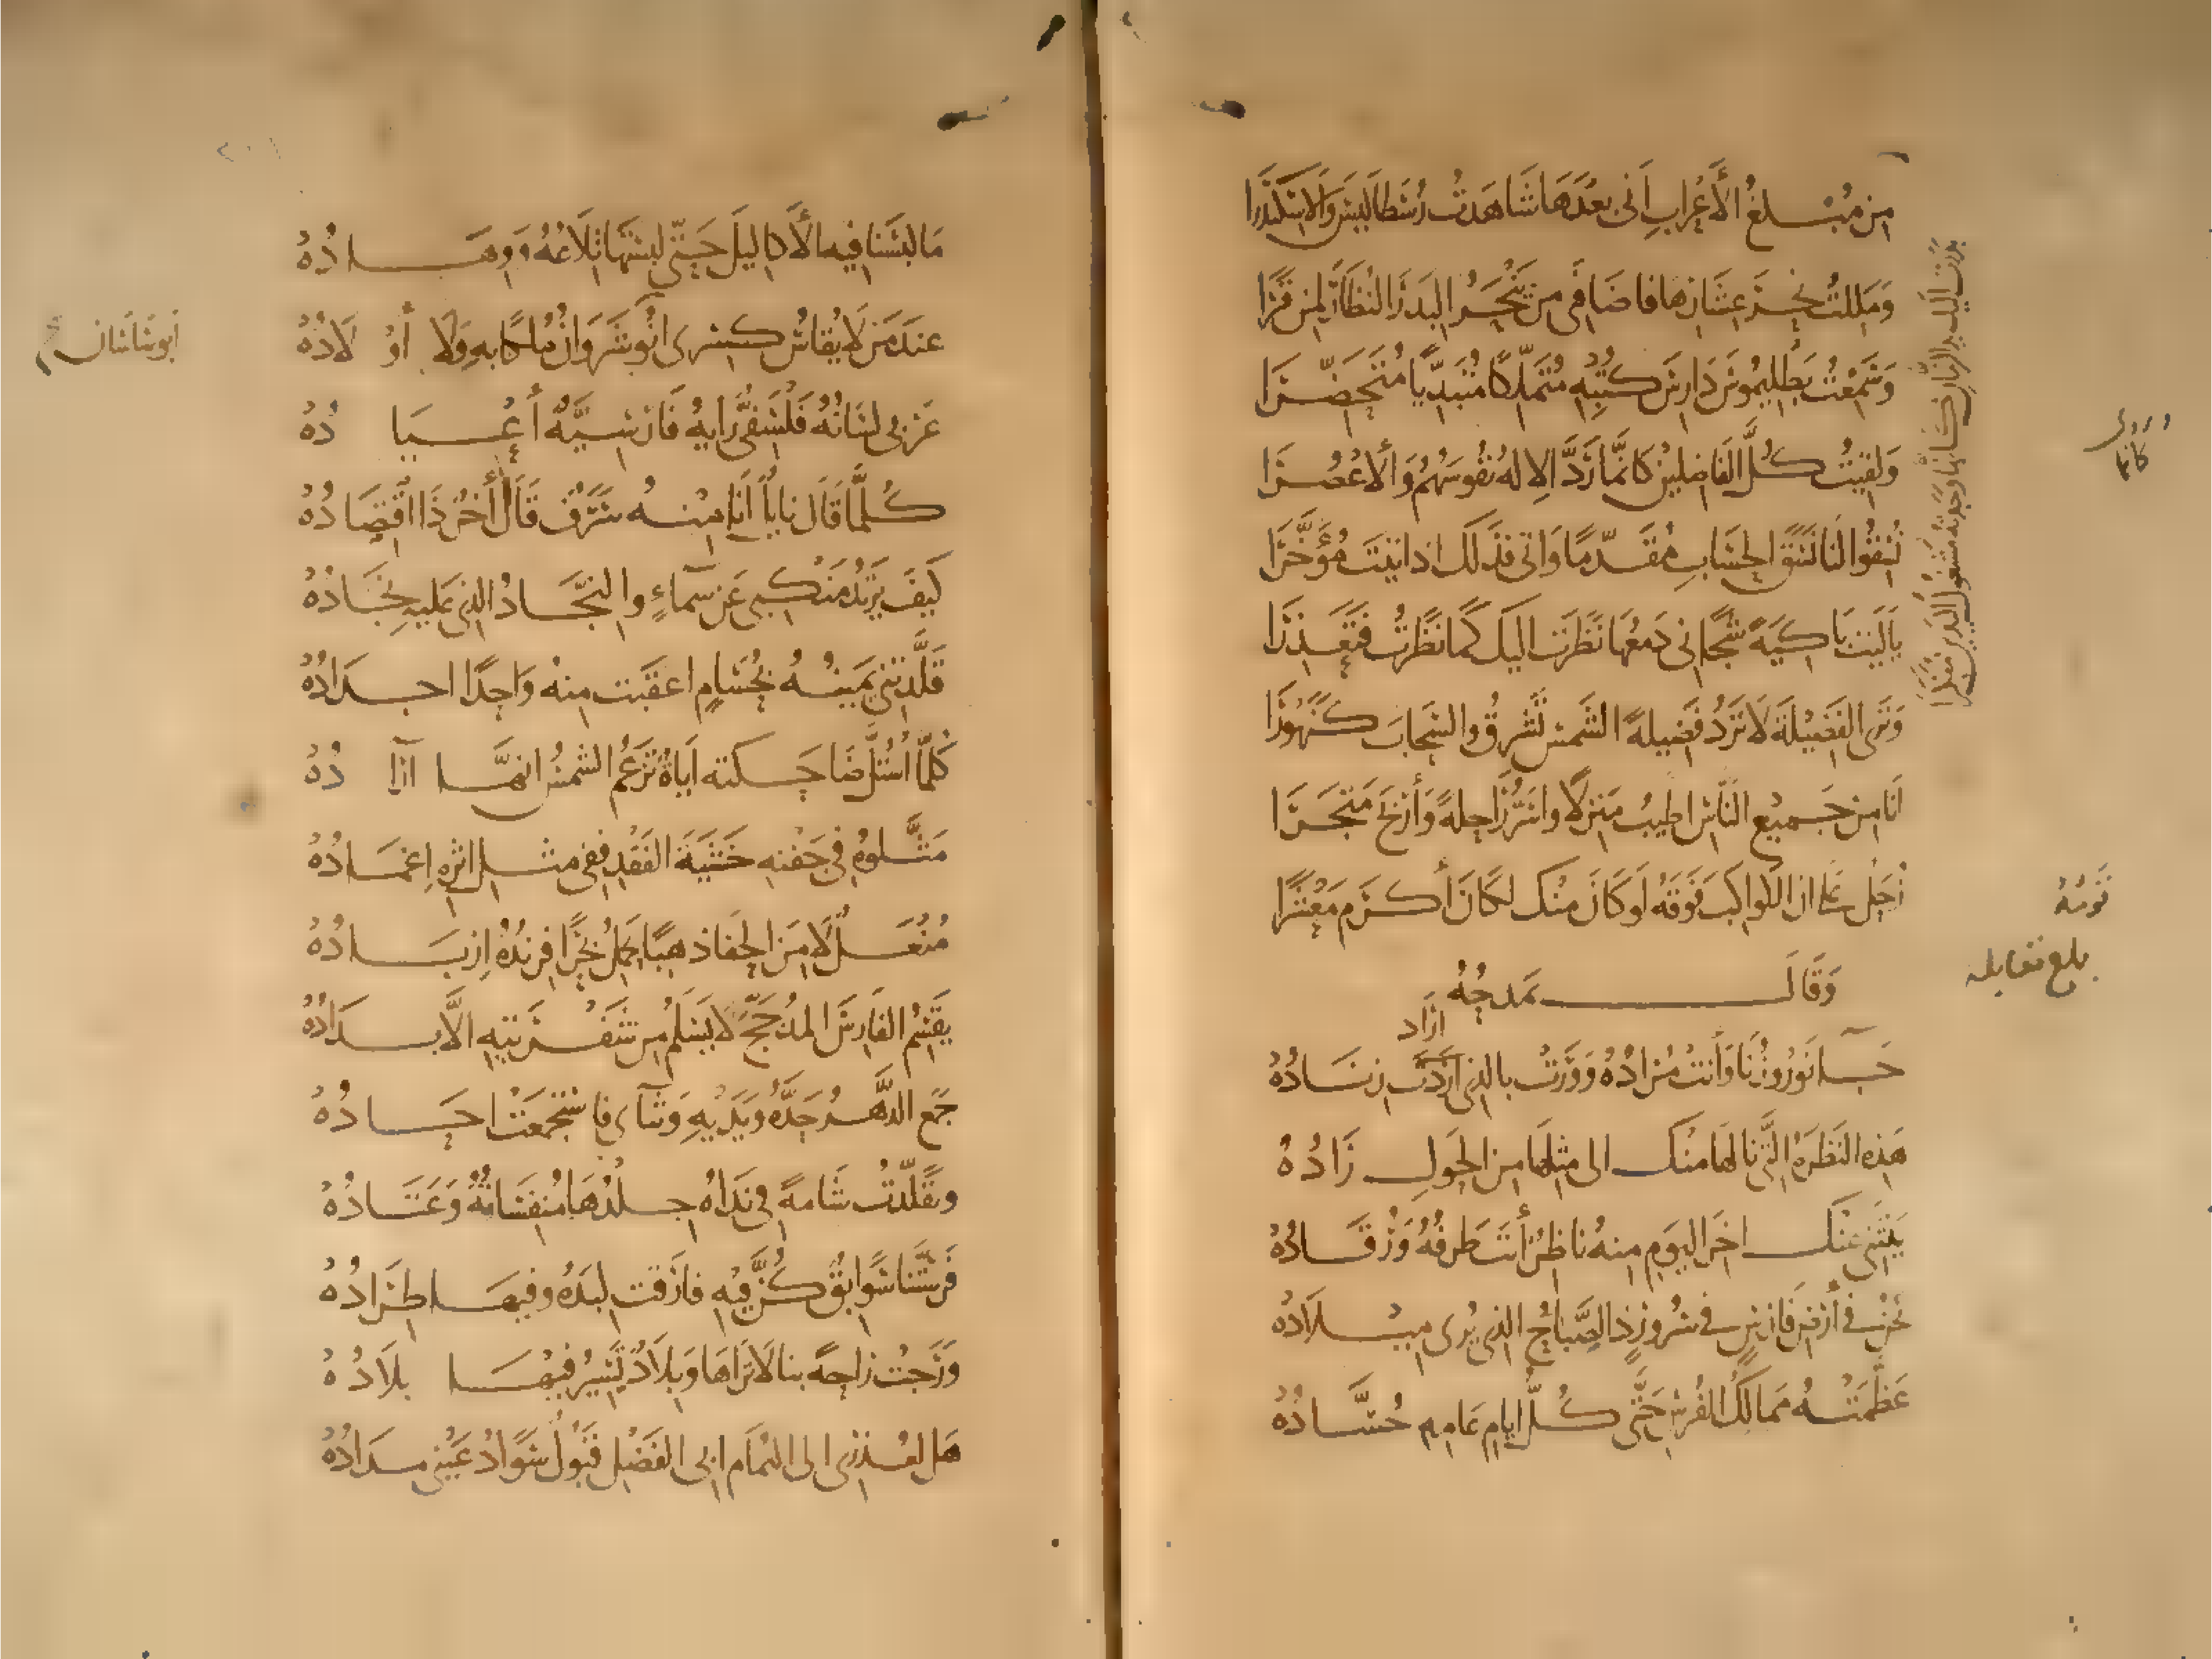 من مُبْلِغُ الأَعْرابِ أَنّى بعدَهَا شَاهَدتُ رُسْطَالِيسَ وَالاسْكَنْدَرَا
وَمَللتُ نحرَ عِشَارِهَا فاضَافَنى مَن يَنْحَرُ البِدَرَ النُّضَارَ لِمن قَرَا
وَسَمِعْتُ بَطْلِيمُوسَ دَارِسَ كُتْبِهِ مُتَمَلِّكًا مُتَبَدِّيًا مُتَحَضِّرَا
وَلَقِيتُ كُلَّ الفَاضِلِينَ كَانَّمَا رَدَّ الِالهُ نفُوسَهُم وَالأعْصُرَا
نُسِقُوا لَنَا نَسَقَ الحِسَابِ مُقَدَّمًا وَاتَى فذلك اذ اتيتَ مُؤَخَّرَا
يَالَيتَ بَاكِيَةً شَجَانى دَمعُهَا نَظَرَت اليكَ كَمَا نَظَرتُ فتَعْذِرَا
وَتَرَى الفَضِيلَةَ لَا تَرُدُّ فَضِيلةً الشَمسَ تُشرِقُ والسَحَابَ كَنَهْوَرَا
أنَا مِن جَميعِ النَّاسِ اطيبُ مَنزلًا واسَرُّ رَاحِلةً وَأَرْبَحُ مَتجَرَا
زُحَلٌ عَلى ان الكَواكِبَ قَومُهُ لَو كَانَ مِنكَ لكَانَ أَكرَمَ مَعْشَرَا
قَومُهُ
بلغ مقابله
وَقَالَ يَمدحُهُ
ازاد
جَاءَ نَورُوزُنَا وَأَنتَ مُرَادُهُ وَوَرَتْ بالذِى أرَدتَ زِنَادُهُ
هَذِهِ النَظرَةُ الَّتِى نَالهَا مِنكَ الى مِثلِهَا مِن الحَولِ زَادُهُ
يَنثَنِى عنكَ اخَرَ اليَومِ مِنهُ نَاظِرٌ أَنتَ طَرفُهُ وَرُقَادُهُ
نحنُ فى أَرضِ فَارسٍ فى سُرُورٍ ذا الصَّبَاحُ الذِى يُرى مِيلَادُهُ
عَظَّمَتْهُ مَمالِكُ الفُرسِ حَتَّى كُلُّ ايامِ عَامِهِ حُسَّادُهُ
مَا لَبِسْنَا فِيهِ الأَكاليلَ حَتّى لبسَتهَا تِلَاعُهُ وَوِهَادُهُ
عندَ مَن لَا يُقاسُ كِسرى انُوشَروَانُ مُلكًا بهِ وَلَا أَوْلَادُهُ
عَرَبى لسَانُهُ فَلْسَفِىٌّ رَايُهُ فَارسِيَّةٌ أَعْيَادُهُ
كُلَّمَا قَالَ نايلٌ أَنَا مِنهُ سَرَفٌ قَالَ أَخرٌ ذَا اقْتِصَادُهُ
كَيفَ يَرتَدُّ مَنكِبِى عَن سَماءٍ والنِجَادُ الذِى عَليهِ نِجَادُهُ
قَلَّدَتنِى يَمِينُهُ بحُسَامٍ اعقَبَت مِنهُ وَاحِدًا اجدَادُهُ
كُلَّمَا اسْتُلَّ ضَاحَكَته اَيَاةٌ تَزعُمُ الشَمسُ انهَا أَرآدُهُ
مَثَّلُوهُ فى جَفنِهِ خَشيَةَ الفَقدِ فَفى مِثلِ اثرِهِ اِغمَادُهُ
مُنعَلٌ لَا مِنَ الحَفَا ذهبًا يَحملُ بَحرًا فِرِندُهُ اِزبَادُهُ
يَقسِمُ الفَارِسَ المُدَجَّجَ لَا يَسلَمُ مِن شَفرَتَيهِ الَّا بِدَادُهُ
جَمَعَ الدَّهرُ حَدَّهُ وَيَدَيْهِ وَثَنآءِى فاسْتَجْمَعَتْ احَادُهُ
وتقَلَّدتُ شَامَةً فى نَدَاهُ جِلْدُهَا مُنفِسَاتُهُ وَعَتَادُهُ
فَرَّسَتْنَا سَوَابِقٌ كُنَّ فِيهِ فارَقَت لِبدَهُ وفيهَا طِرَادُهُ
وَرَجَتْ رَاحةً بنا لَا تَرَاهَا وَبِلَادٌ تَسِيرُ فِيهَا بِلَادُهُ
هَل لعُذرِى الى الهُمَامِ ابى الفَضلِ قَبُولٌ سَوَادُ عَينِى مِدَادُهُ